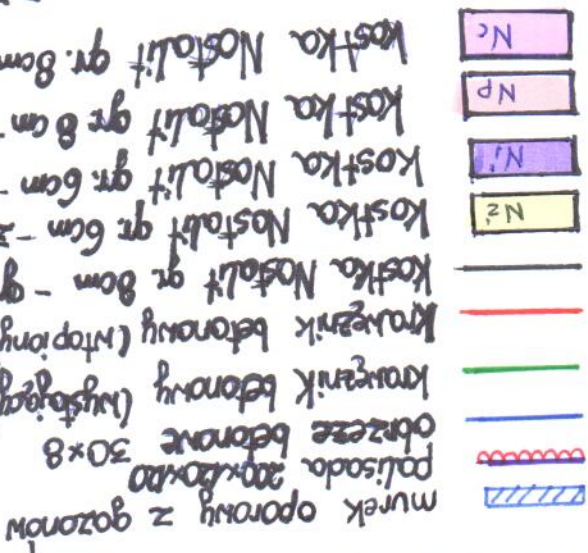 murek oporowy z gazonów
palisada 200x120x120
obrzeże betonowe 30x8
krawężnik betonowy (wystając
krawężnik betonowy (wtopiony
Kostka Nostalit gr 8cm - g
Nż Kostka Nostalit gr 6cm - ż
Ni Kostka Nostalit gr. 6cm -
Np Kostka Nostalit gr 8 cm -
Nc Kostka Nostalit gr. 8cm